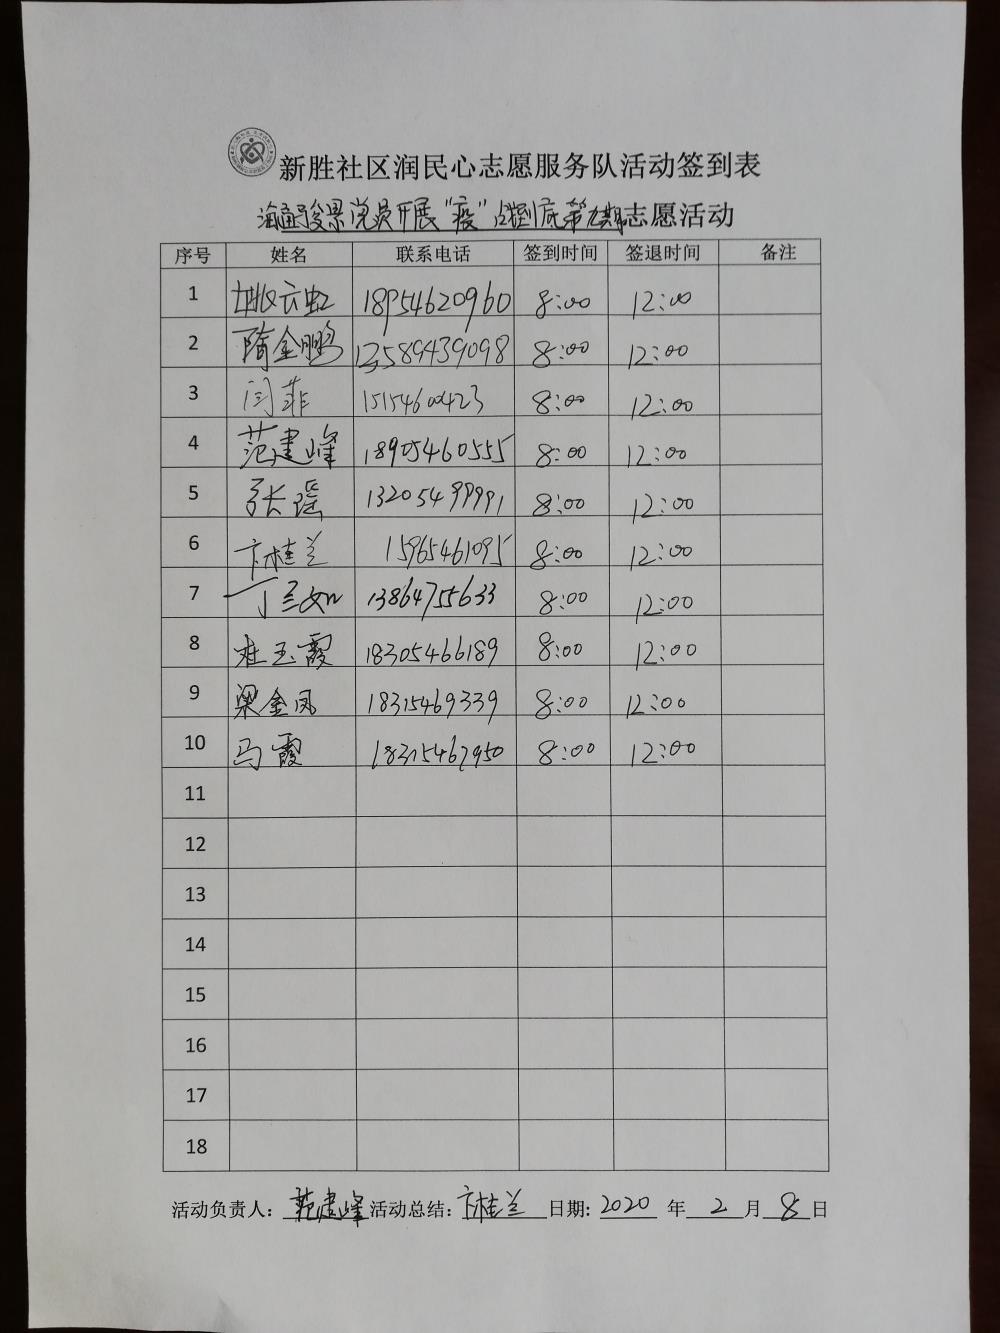 新胜社区润民心志愿服务队活动签到表
海通骏景党员开展“疫”战到底第九期志愿活动
序号 姓名 联系电话 签到时间 签退时间 备注
1 姚云虹 18954620960 8:00 12:00
2 隋金鹏 13589439098 8:00 12:00
3 闫菲 15154600423 8:00 12:00
4 范建峰 18905460555 8:00 12:00
5 张瑶 13205499991 8:00 12:00
6 卞桂兰 15965461095 8:00 12:00
7 丁兰如 13864755633 8:00 12:00
8 杜玉霞 18305466189 8:00 12:00
9 梁金凤 18315469339 8:00 12:00
10 马霞 18315467950 8:00 12:00
11
12
13
14
15
16
17
18
活动负责人：范建峰 活动总结：卞桂兰 日期：2020 年 2 月 8 日